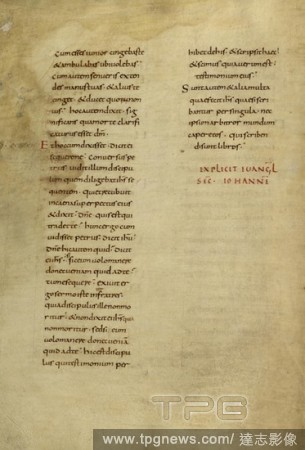 cum esses iunior cingebas te
& ambulabas ubi uolebas
cum autem senueris exten
des manus tuas & alius te
cinget & ducet quo non
uis hoc autem dixit sig
nificans qua morte clarifi
caturus esset dm
Et hoc cum dixisset dicit ei
sequere me Conuersus pe
trus uidit illum discipu
lum quem diligebat ihs se
quentem qui et recubuit
in cena super pectus eius
& dixit dne quis est qui
tradet te hunc ergo cum
uidisset petrus dicit ihu
dne hic autem quid dicit
ei ihs sic eum uolo manere
donec ueniam quid ad te
tu me sequere exiuit er
go sermo iste in fratres
quia discipulus ille non mo
ritur & non dixit ei ihs
non moritur sed si eum
uolo manere donec ueniam
quid ad te hic est discipu
lus qui testimonium per
hibet de his & scripsit haec
& scimus quia uerum est
testimonium eius
Sunt autem & alia multa
quae fecit ihs quae si scri
bantur per singula nec
ipsum arbitror mundum
capere eos qui scriben
di sunt libros
EXPLICIT EUANGL
SEC IOHANNE
TPG
www.tpgnews.com/達志影像